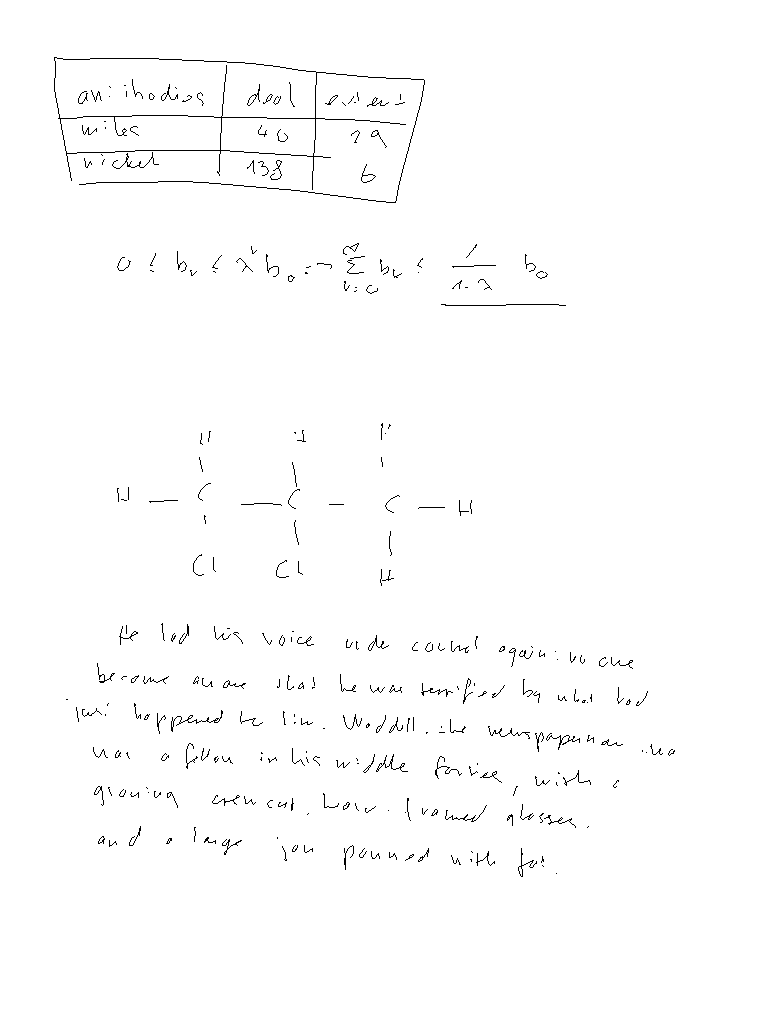 antibodies deal extent
miles 40 29
nickel 138 6
0 ≤ b_v ≤ λ^v b_0 ⇒ ∑_{v=0}^{∞} b_v ≤ 1/(1-λ) b_0
H H H
H — C — C — C — H
Cl Cl H
He had his voice under control again: no one
became aware that he was terrified by what had
just happened to him. Waddell, the newspaperman who
was a fellow in his middle forties, with a
growing crew cut, horn-framed glasses,
and a large jaw padded with fat.